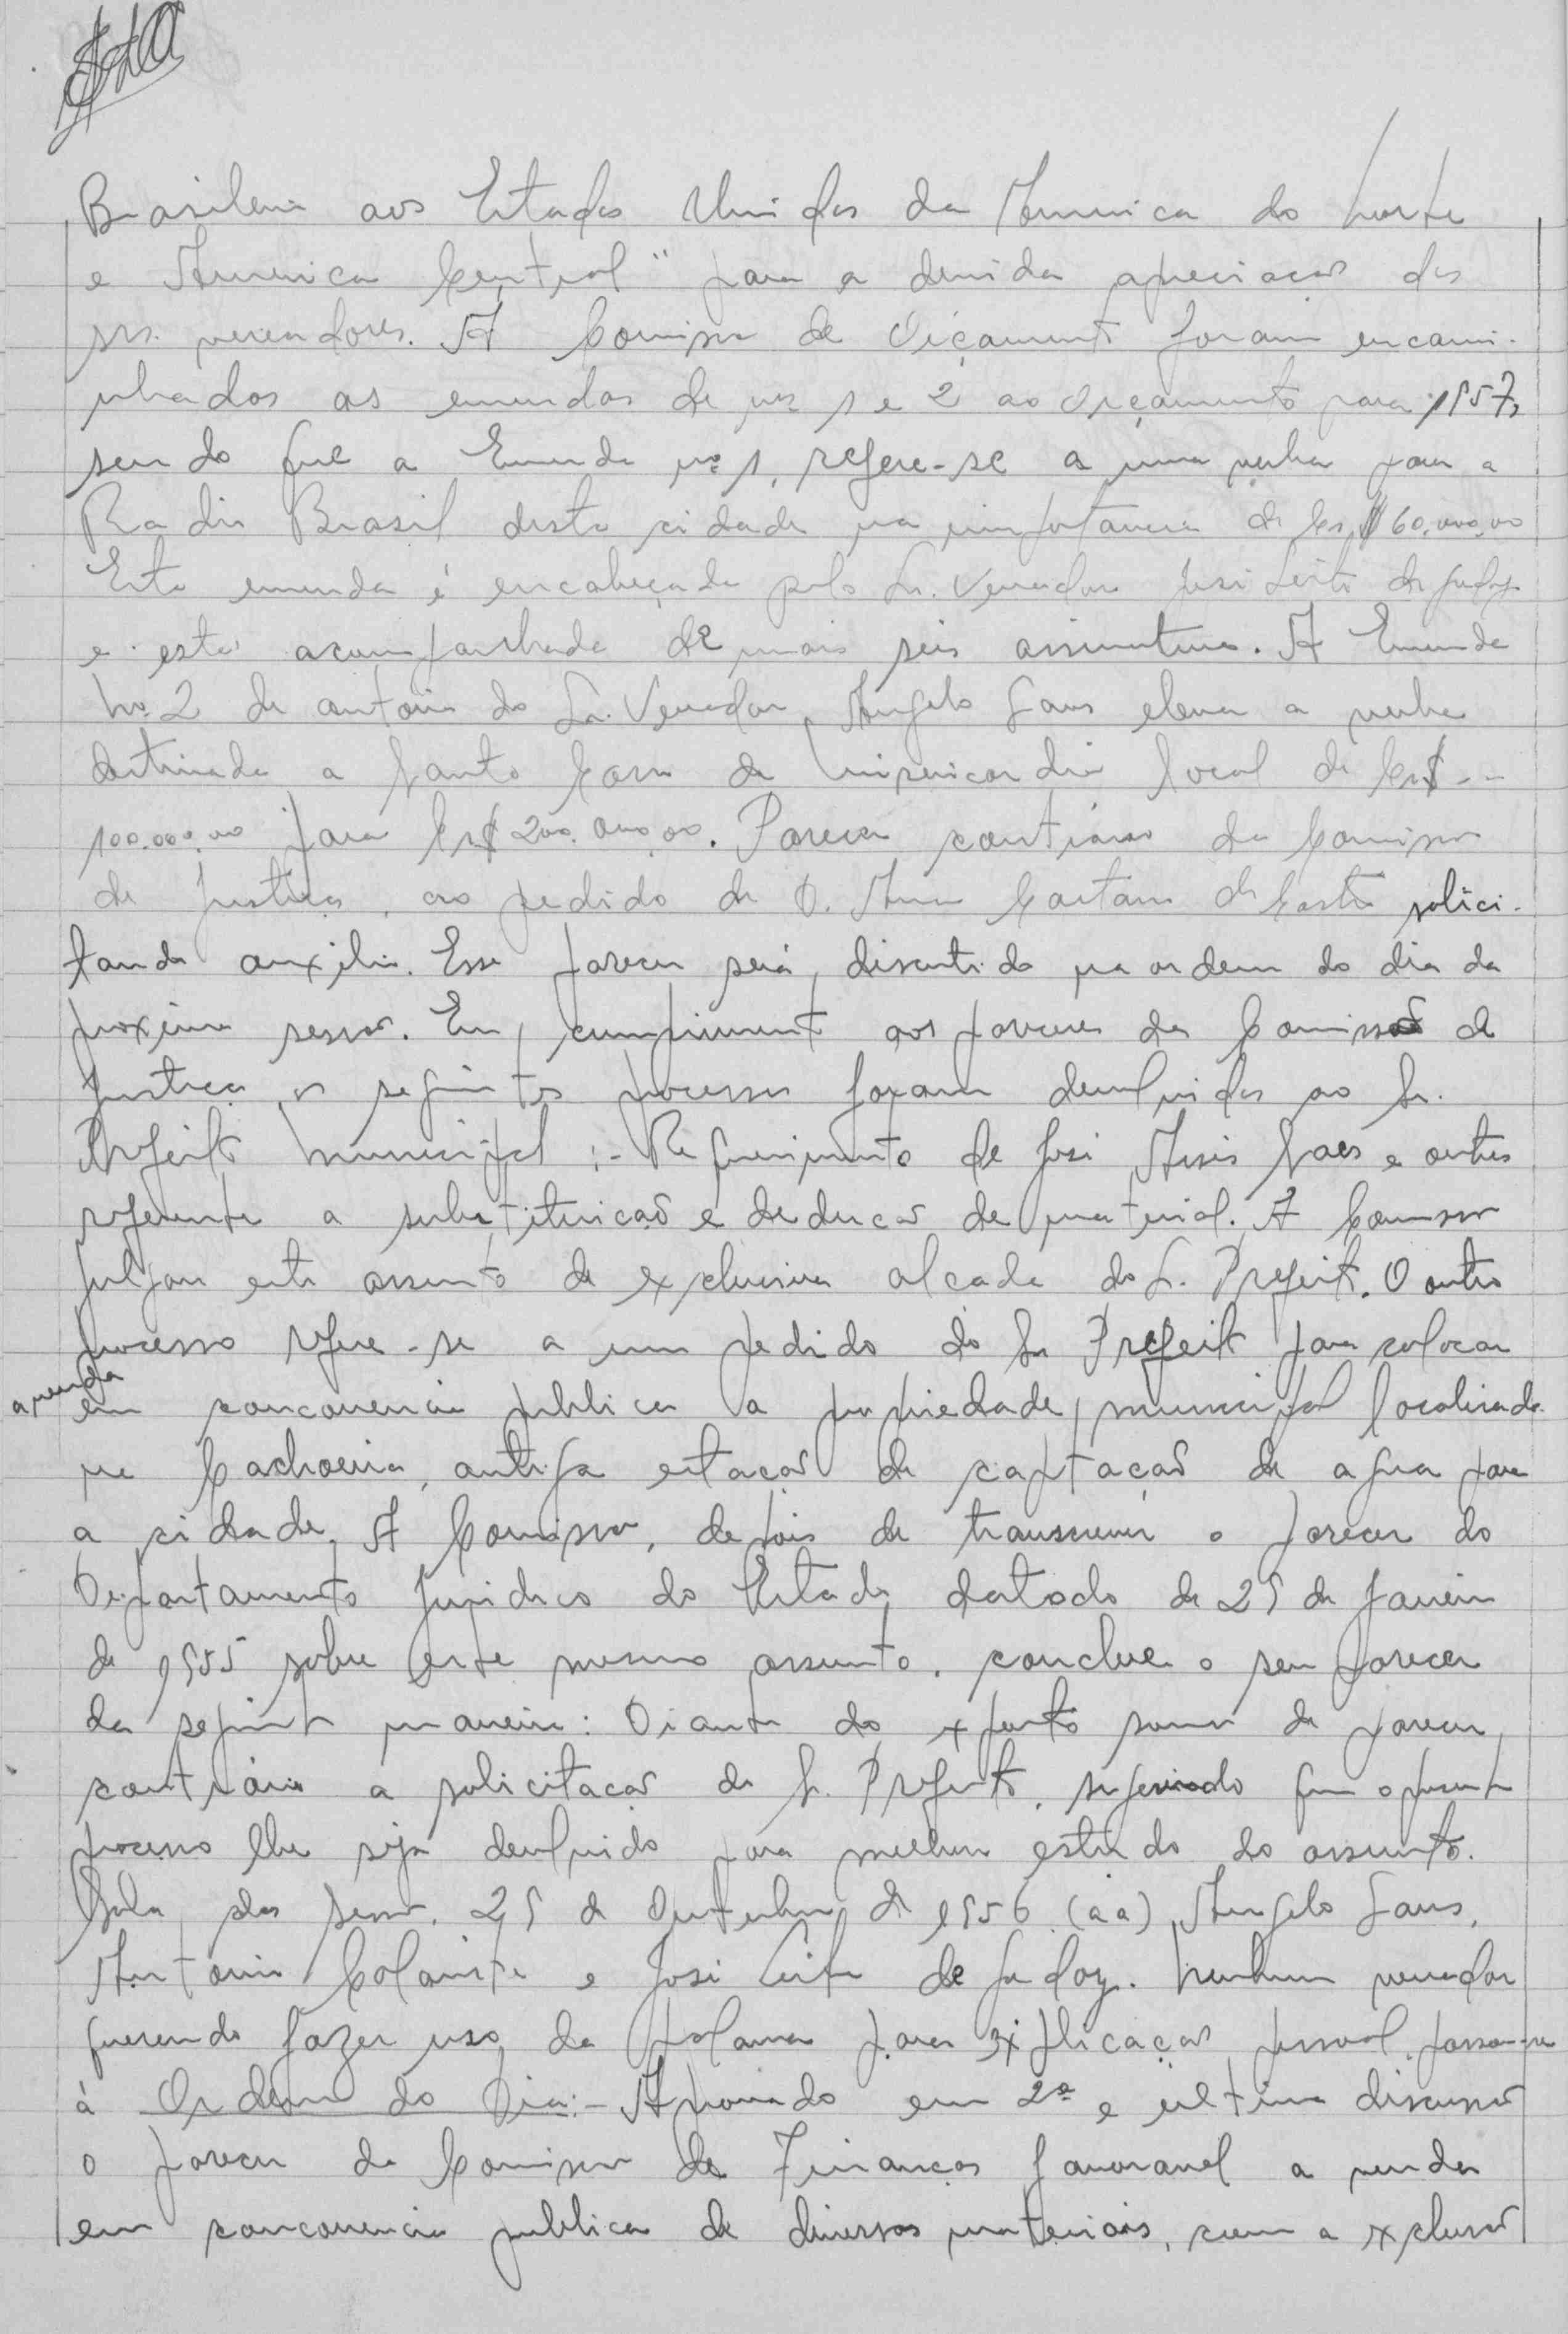 Brasileira aos Estados Unidos da America do Norte
e America Central" para a devida apreciação dos
srs. vereadores. A Comissão de Orçamento foram encami-
nhados as emendas de nos 1 e 2 ao Orçamento para 1957,
sendo que a Emenda nº 1, refere-se a uma verba para a
Radio Brasil desta cidade na importancia de Cr$ 60.000,00
Esta emenda é encabeçada pelo Sr. Vereador José Leite de Godoy
e está acompanhada de mais seis assinaturas. A Emenda
No. 2 de autoria do Sr. Vereador Angelo Saus eleva a verba
destinada a Santa Casa de Misericordia local de Cr$ --
100.000,00 para Cr$ 200.000,00. Parecer contrário da Comissão
de Justiça, ao pedido de D. Ana Caetano de Castro solici-
tando auxilio. Esse parecer será discutido na ordem do dia da
proxima sessão. Em cumprimento aos pareceres da Comissão de
Justiça os seguintes processos foram devolvidos ao Sr.
Prefeito Municipal :- Requerimento de José Assis Saes e outros
referente a substituicão e deducão de material. A Comissão
julgou este assunto de exclusiva alcada do Sr. Prefeito. O outro
processo refere-se a um pedido do Sr Prefeito para colocar
a venda
em concorrencia publica a propriedade municipal localizada
na Cachoeira, antiga estação de captação de agua para
a cidade. A Comissão, depois de transcrever o parecer do
Departamento Juridico do Estado datado de 25 de Janeiro
de 1955 sobre este mesmo assunto, conclue o seu parecer
da seguinte maneira: Diante do exposto somos de parecer
contrário a solicitação do Sr. Prefeito, sugerindo que o presente
processo lhe seja devolvido para melhor estudo do assunto.
Sala das Sessões, 25 de Outubro de 1956 (aa) Angelo Saus,
Antonio Colaniti e José Leite de Godoy. Nenhum vereador
querendo fazer uso da palavra para explicação pessoal, passou-se
à Ordem do Dia:- Aprovado em 2ª e última discussão
o parecer da Comissão de Finanças favoravel a venda
em concorrencia publica de diversos materiais, com a exclusão